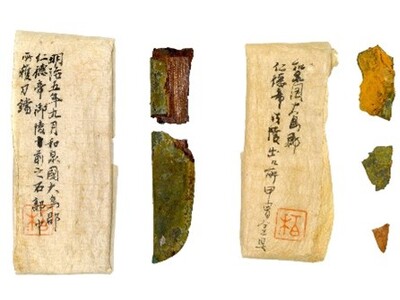 明治五年九月和泉國大鳥郡
仁徳帝御陵方前之石郭中
所獲刀鐺
柏
和泉国大鳥郡
仁徳帝御陵出所甲冑金具
柏